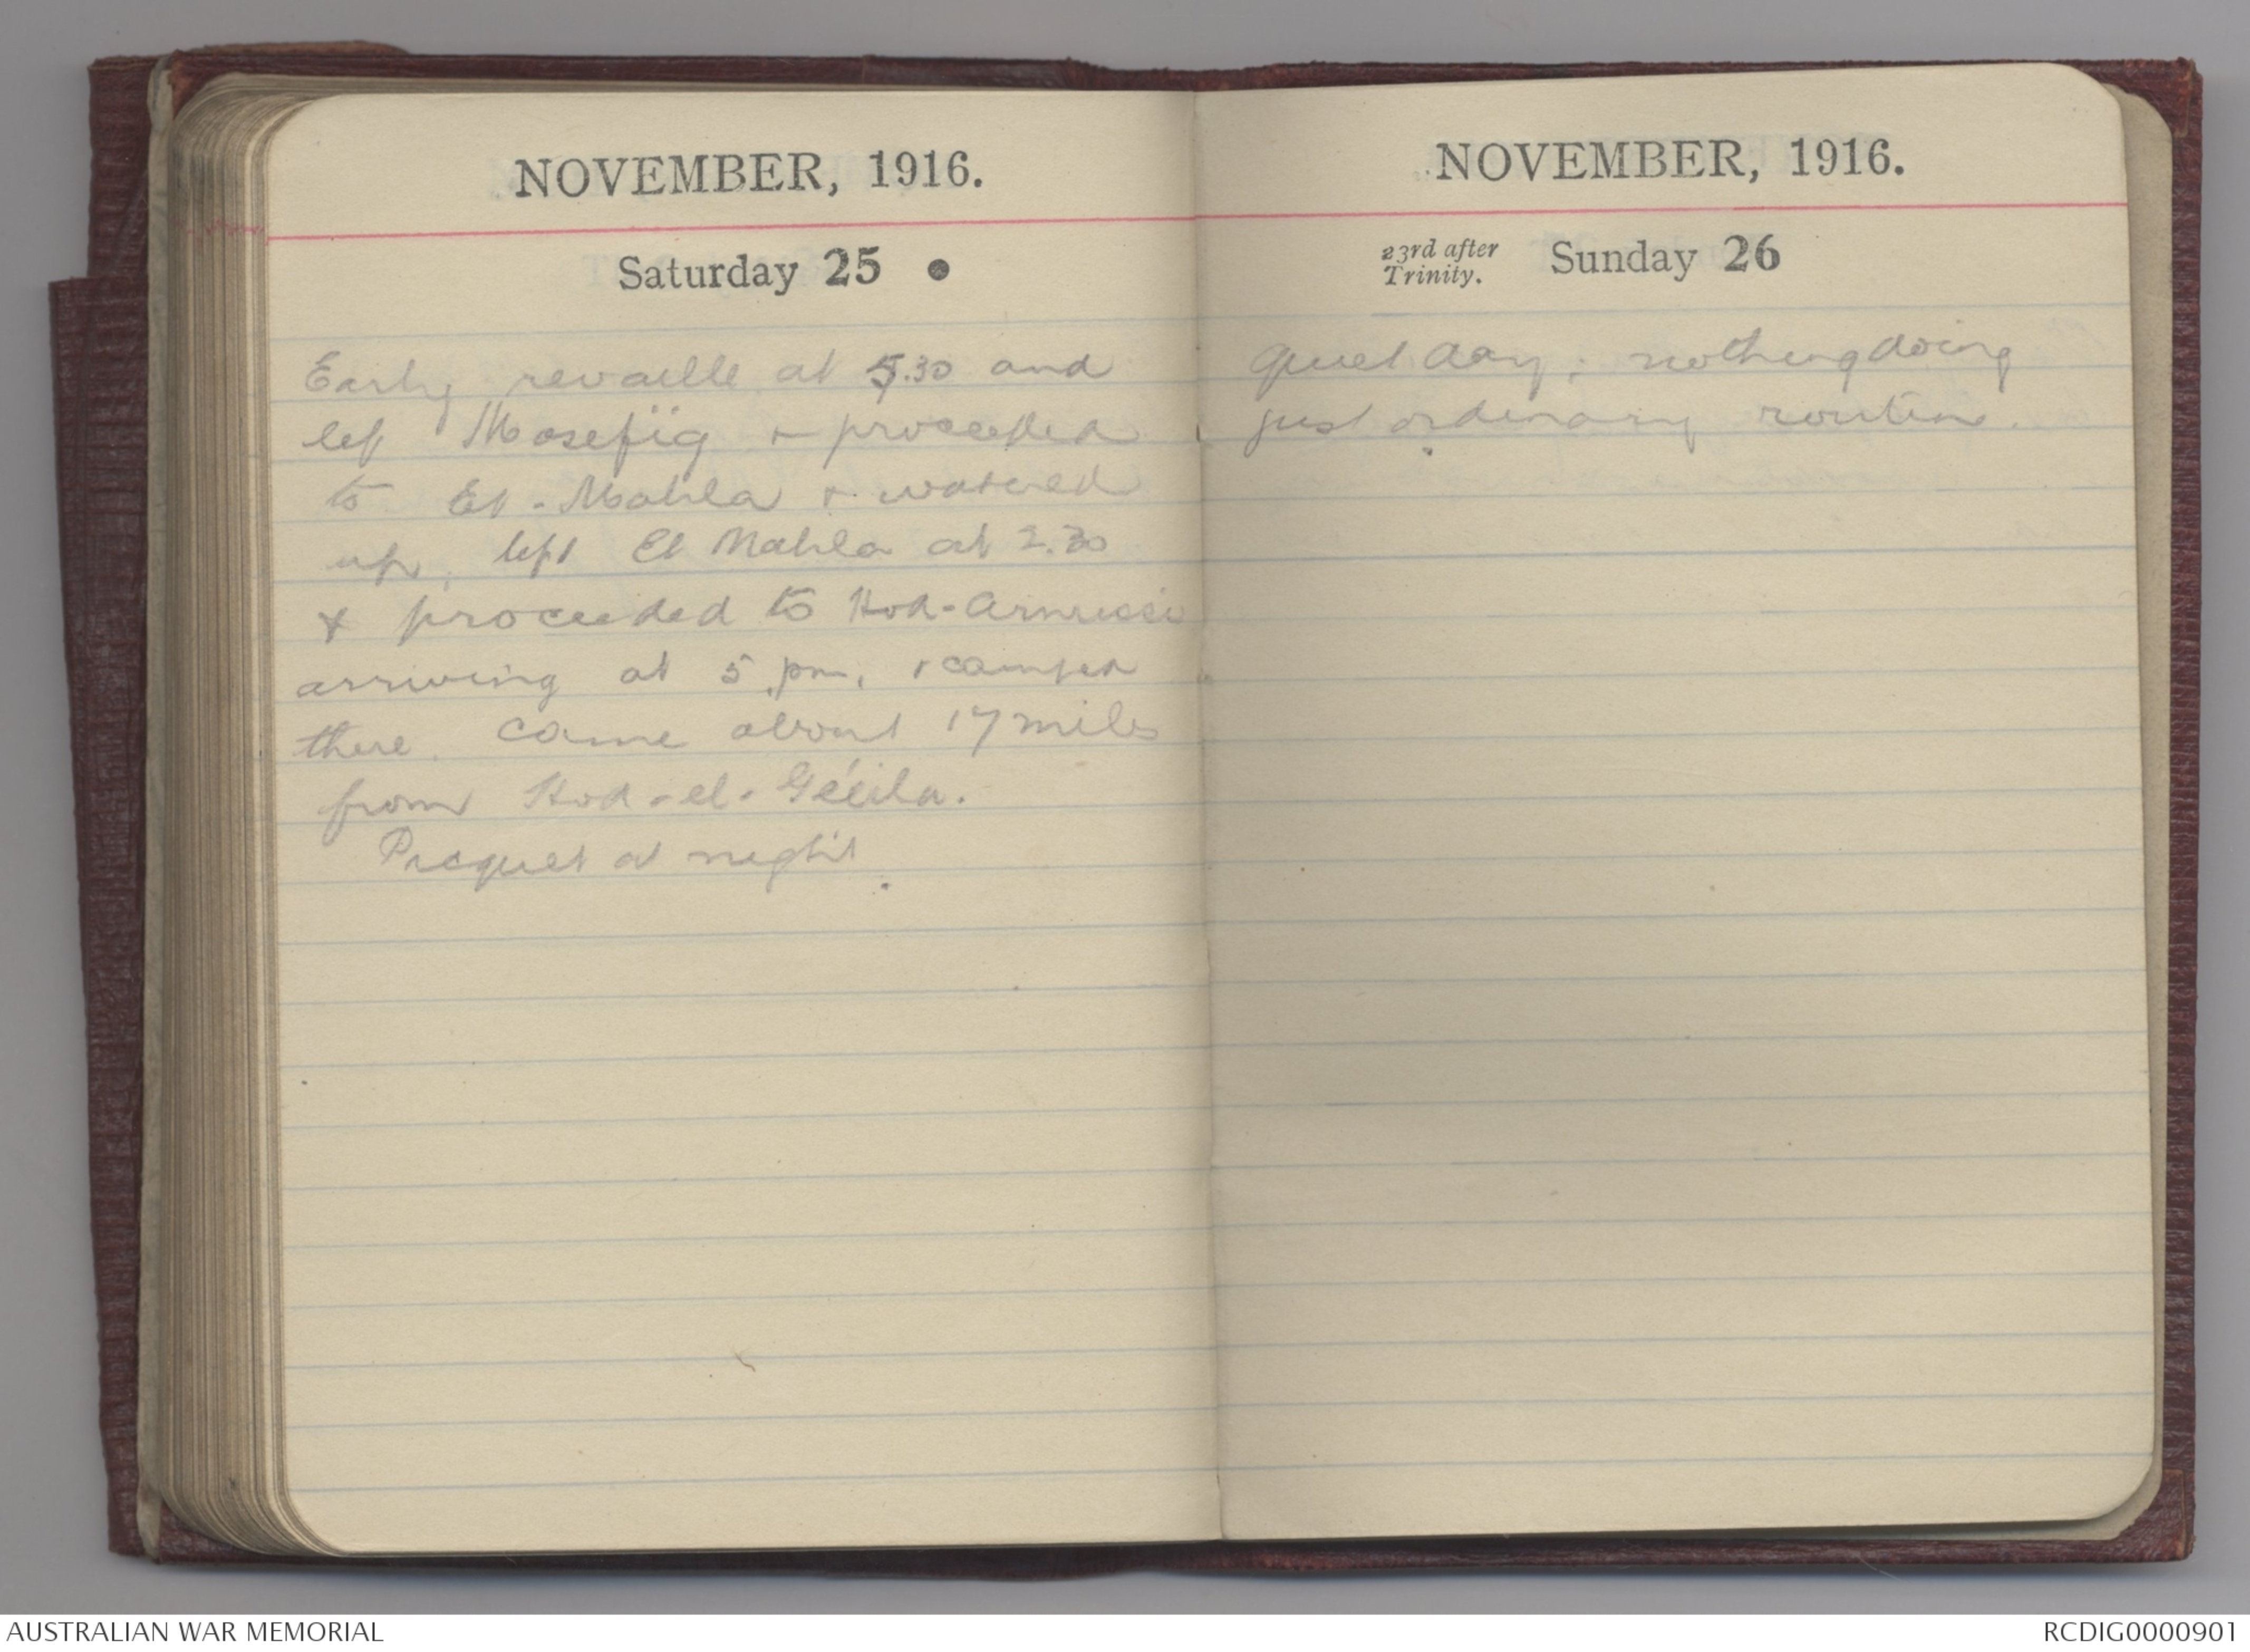 NOVEMBER, 1916.
Saturday 25
Early revaille at 5.30 and
left Mosefig & proceeded
to El-Mahla & watered
up, left El Mahla at 2.30
& proceeded to Hod-
arriving at 5 pm, & camped
there. Came about 17 miles
from Hod-el-Géeila.
Picquet at night.
NOVEMBER, 1916.
23rd after Trinity. Sunday 26
Quiet day; nothing doing
just ordinary routine.
AUSTRALIAN WAR MEMORIAL
RCDIG0000901